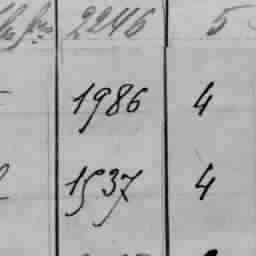 2246 5
1986 4
1537 4